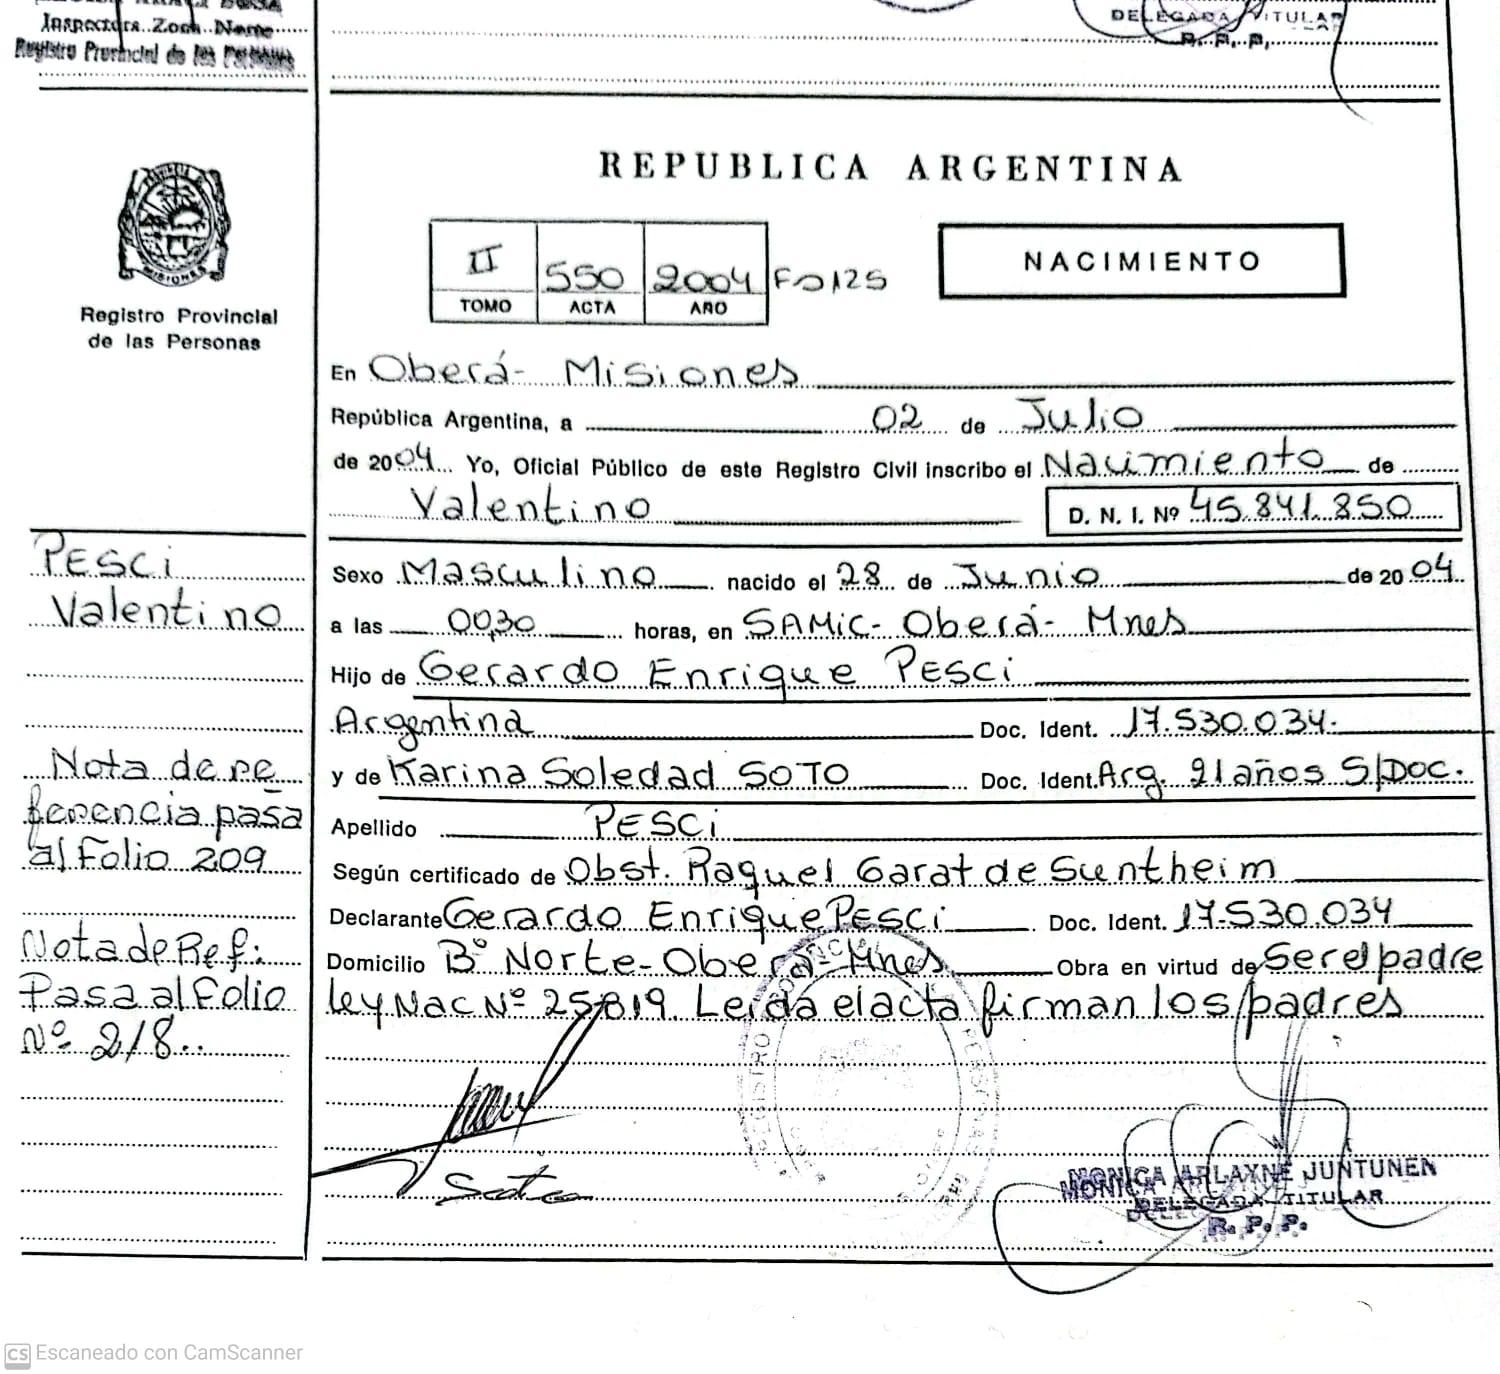 Inspectora Zona Norte
Registro Provincial de las Personas
DELEGADA TITULAR
R. P. P.
MISIONES
Registro Provincial
de las Personas
REPUBLICA ARGENTINA
II 550 2004 Fº 125
TOMO ACTA AÑO
NACIMIENTO
En Oberá - Misiones
República Argentina, a 02 de Julio
de 2004 Yo, Oficial Público de este Registro Civil inscribo el Nacimiento de
Valentino D. N. I. Nº 45.841.850
Sexo Masculino nacido el 28 de Junio de 2004
a las 00,30 horas, en SAMiC - Oberá - Mnes
Hijo de Gerardo Enrique PESCi
Argentina Doc. Ident. 17.530.034.
y de Karina Soledad SOTO Doc. Ident. Arg. 21 años S/Doc.
Apellido PESCi
Según certificado de Obst. Raquel Garat de Suntheim
Declarante Gerardo Enrique PESCi Doc. Ident. 17.530.034
Domicilio Bº Norte - Oberá - Mnes Obra en virtud de Ser el padre
ley Nac Nº 25819. Leida el acta firman los padres
PESCi
Valentino
Nota de re
ferencia pasa
al Folio 209
Nota de Ref:
Pasa al Folio
Nº 218..
REGISTRO PERSONAS
Soto
MONICA ARLAYNE JUNTUNEN
DELEGADA TITULAR
R. P. P.
CS Escaneado con CamScanner